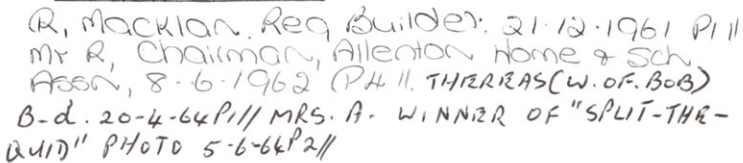 R, Macklan. Reg Builder. 21.12.1961 P1 //
Mr R, Chairman, Allenton Home & Sch
Assn, 8.6.1962 (P4 //. THEREAS (W. OF. BOB)
B-d. 20-4-64 P1// MRS. A. WINNER OF "SPLIT-THE-
QUID" PHOTO 5-6-64 P2//